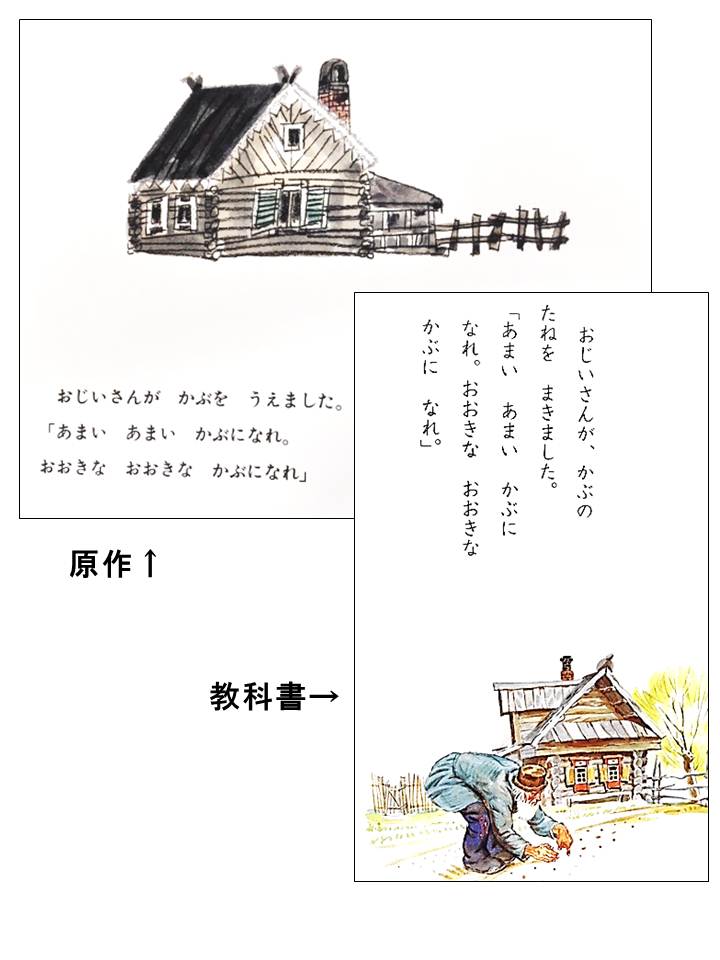 おじいさんが　かぶを　うえました。
「あまい　あまい　かぶになれ。
おおきな　おおきな　かぶになれ」
原作↑
おじいさんが、かぶの
たねを　まきました。
「あまい　あまい　かぶに
なれ。おおきな　おおきな
かぶに　なれ。」
教科書→